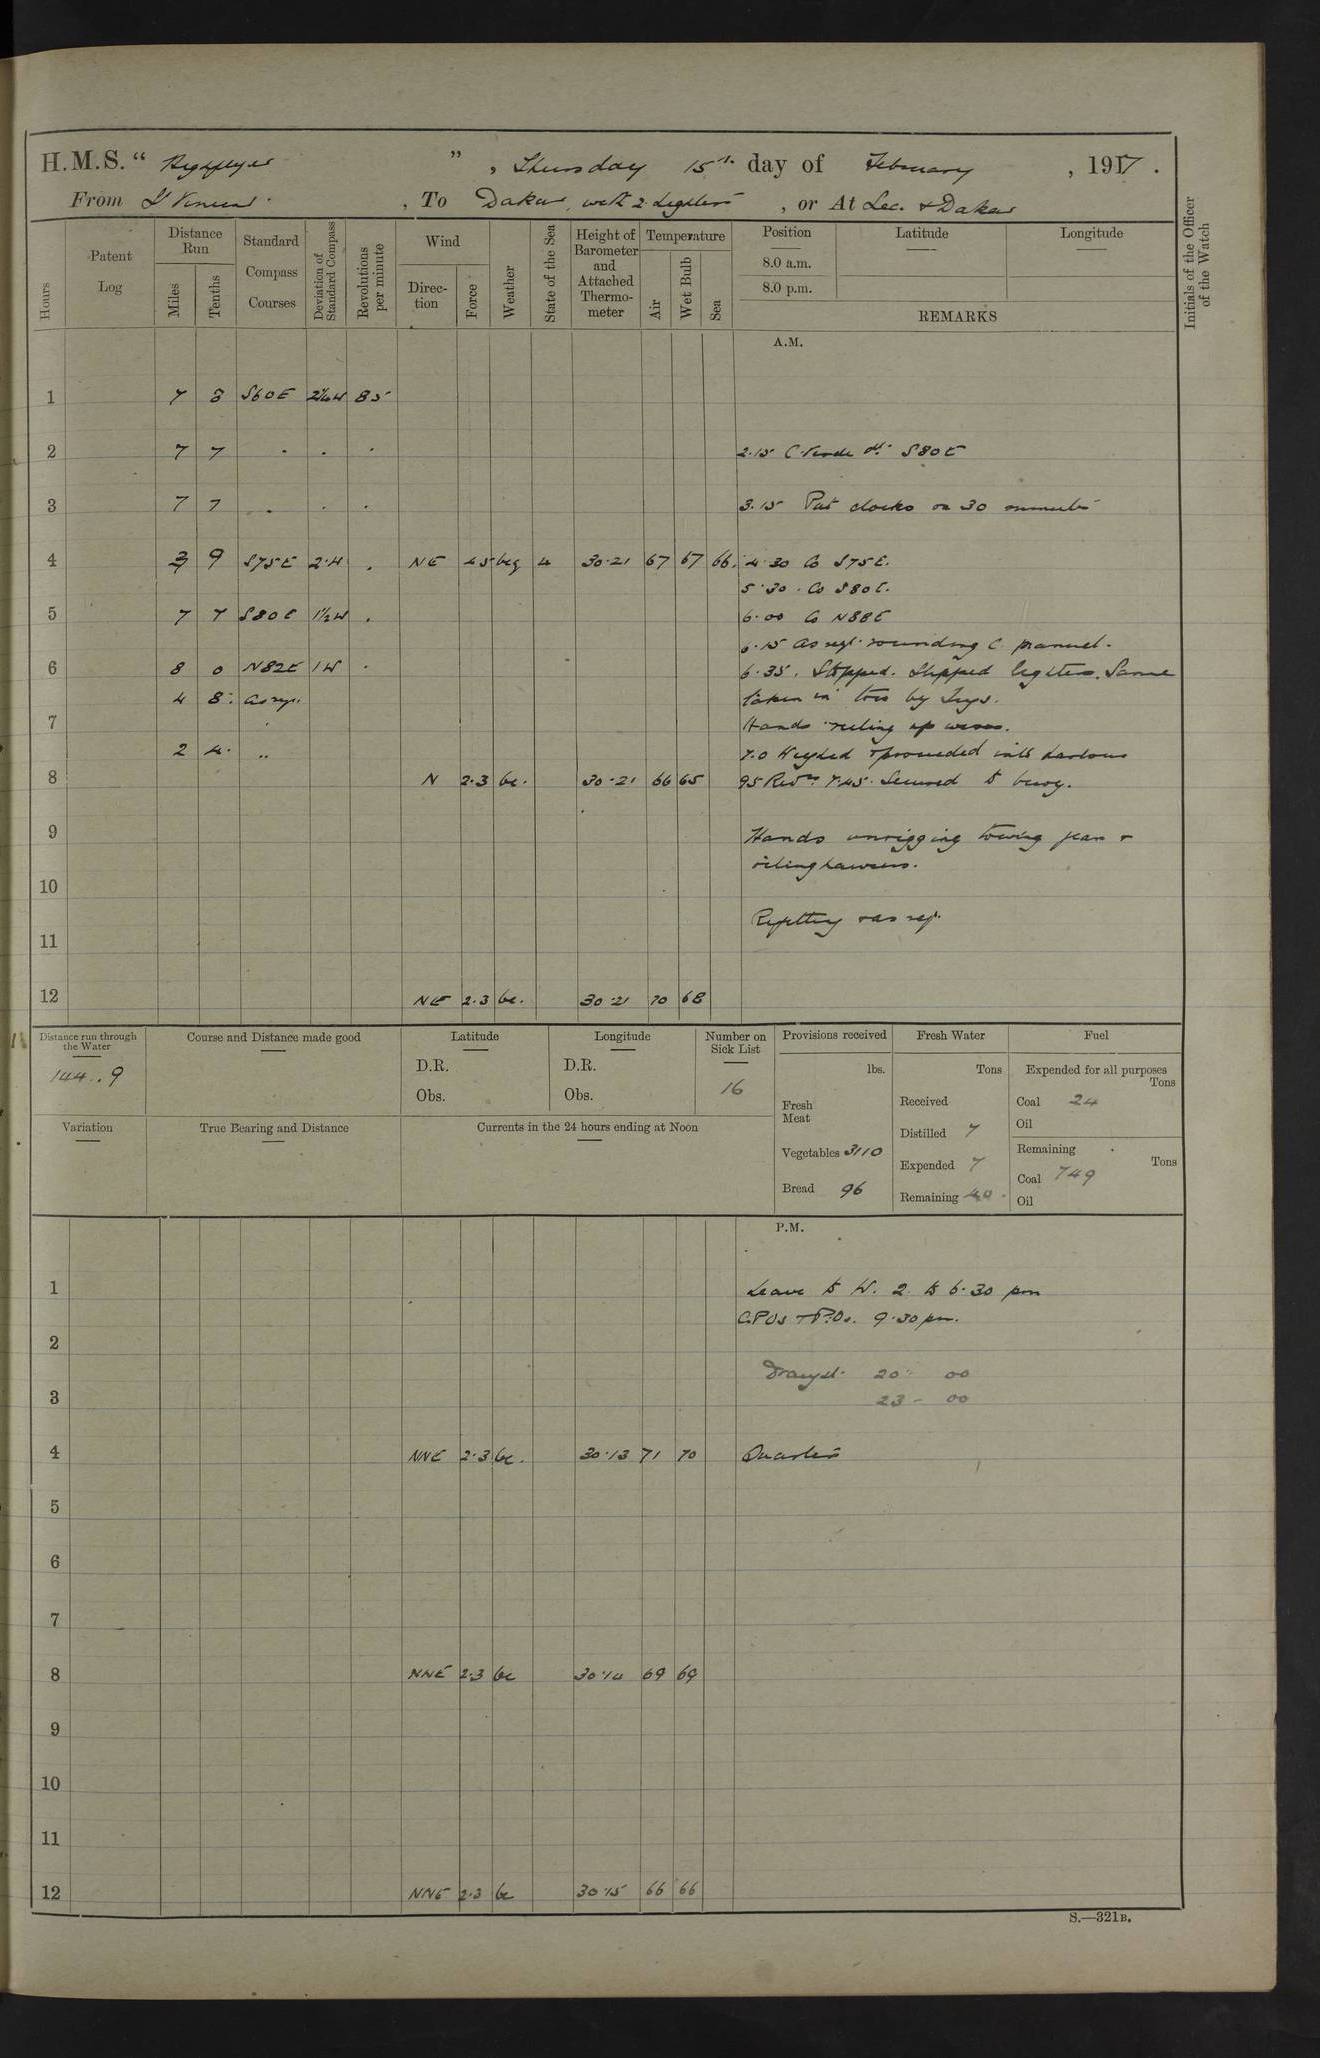 H.M.S. “ Highflyer ” , Thursday 15th day of February , 1917 .
From St Vincent , To Dakar with 2 Lighters , or At Sea & Dakar
Hours
Patent Log
Distance Run
Miles
Tenths
Standard Compass Courses
Deviation of Standard Compass
Revolutions per minute
Wind
Direction
Force
Weather
State of the Sea
Height of Barometer and Attached Thermometer
Temperature
Air
Wet Bulb
Sea
Position
8.0 a.m.
8.0 p.m.
Latitude
Longitude
REMARKS
Initials of the Officer of the Watch
A.M.
1 7 8 S60E 2¼W 85
2 7 7 . . . 2.15 C. Verde Lt. S80E
3 7 7 . . . 3.15 Put clocks on 30 minutes
4 3 9 S75E 2.W . NE 4.5 bcg 4 30.21 67 67 66. 4.30 Co S75E.
5.30 . Co S80E.
5 7 7 S80E 1½W . 6.00 Co N88E
6.15 As reqt. rounding C. Manuel.
6 8 0 N82E 1W . 6.35. Stopped. Slipped lighters. Same
4 8. As req. taken in tow by Tugs.
7 Hands reeling up wires.
2 4. „ 7.0 Weighed & proceeded into harbour
8 N 2.3 bc. 30.21 66 65 95 Revs. 7.45. Secured to buoy.
9 Hands unrigging towing gear &
reeling hawsers.
10
Refitting & as req.
11
12 NE 2.3 bc. 30.21 70 68
Distance run through the Water
144.9
Course and Distance made good
Latitude
D.R.
Obs.
Longitude
D.R.
Obs.
Number on Sick List
16
Provisions received
lbs.
Fresh Meat
Vegetables 3110
Bread 96
Fresh Water
Tons
Received
Distilled 7
Expended 7
Remaining 40
Fuel
Expended for all purposes
Tons
Coal 24
Oil
Remaining
Tons
Coal 749
Oil
Variation
True Bearing and Distance
Currents in the 24 hours ending at Noon
P.M.
1 Leave to W. 2. to 6.30 pm
C.P.Os & P.Os. 9.30 pm.
2
Draught 20 - 00
3 23 - 00
4 NNE 2.3 bc. 30.13 71 70 Quarters
5
6
7
8 NNE 2.3 bc 30.14 69 69
9
10
11
12 NNE 2.3 bc 30.15 66 66
S.—321B.